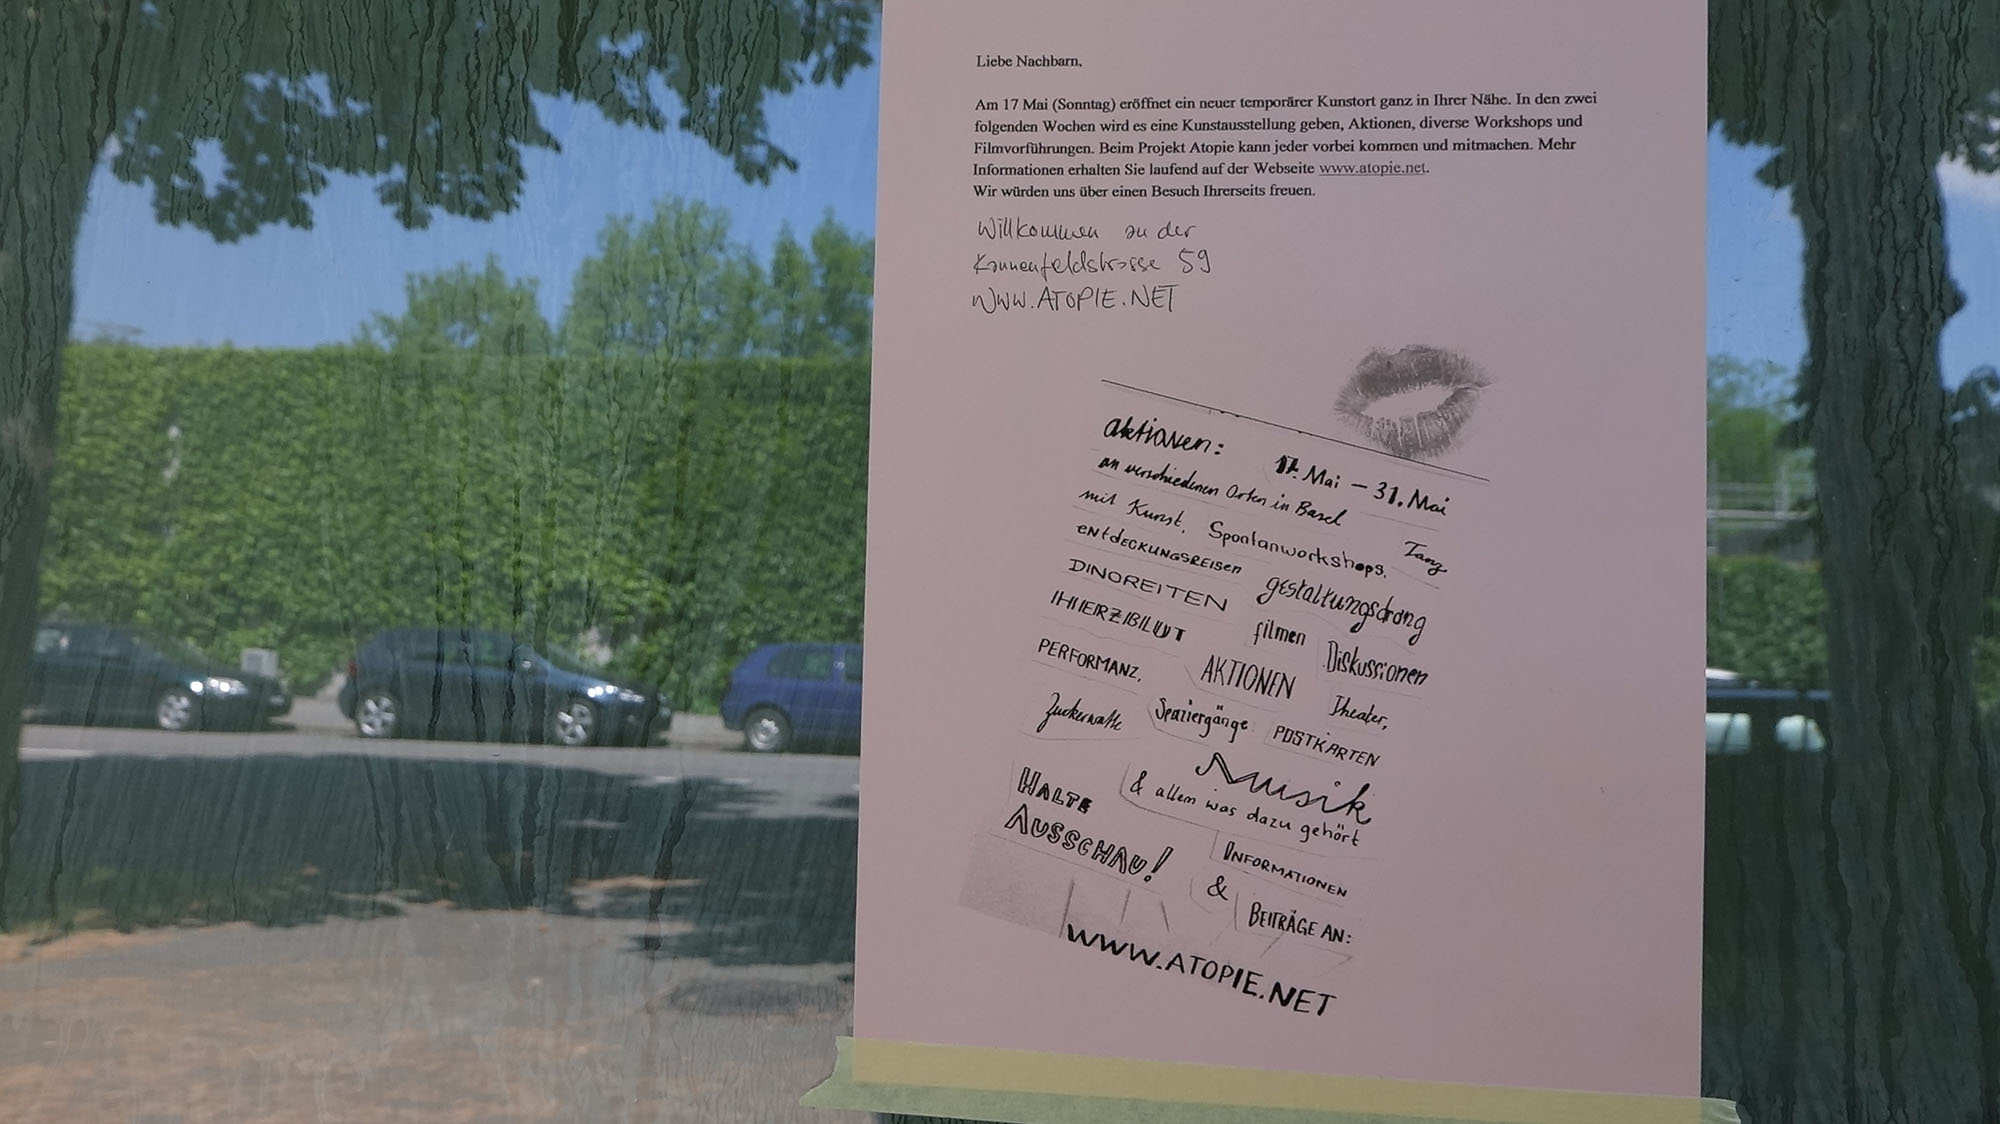 Liebe Nachbarn,
Am 17 Mai (Sonntag) eröffnet ein neuer temporärer Kunstort ganz in Ihrer Nähe. In den zwei
folgenden Wochen wird es eine Kunstausstellung geben, Aktionen, diverse Workshops und
Filmvorführungen. Beim Projekt Atopie kann jeder vorbei kommen und mitmachen. Mehr
Informationen erhalten Sie laufend auf der Webseite www.atopie.net.
Wir würden uns über einen Besuch Ihrerseits freuen.
Willkommen an der
Kannenfeldstrasse 59
WWW.ATOPIE.NET
aktionen: 17. Mai – 31. Mai
an verschiedenen Orten in Basel
mit Kunst, Spontanworkshops, Tanz
entdeckungsreisen gestaltungsdrang
DINOREITEN filmen Diskussionen
HERZBLUT AKTIONEN Theater,
PERFORMANZ, Spaziergänge POSTKARTEN
Zuckerwatte Musik
& allem was dazu gehört
HALTE
AUSSCHAU!
INFORMATIONEN
& BEITRÄGE AN:
WWW.ATOPIE.NET